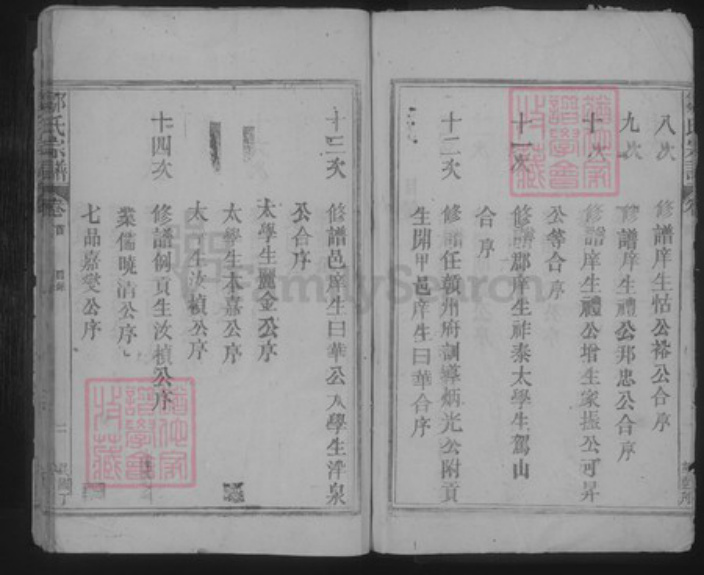 八次　修譜庠生怙公裕公合序
九次　修譜庠生禮公邦忠公合序
十次　修譜庠生禮公增生家振公可昇
公等合序
十一次　修譜郡庠生祚泰太學生駕山
合序
十二次　修譜任贛州府訓導炳光公附貢
生開甲邑庠生曰華合序
十三次　修譜邑庠生曰華公太學生泮泉
公合序
太學生麗金公序
太學生本嘉公序
太學生汝楨公序
十四次　修譜例貢生汝楨公序
業儒曉清公序
七品嘉燮公序
氏宗譜　卷首
FamilySearch